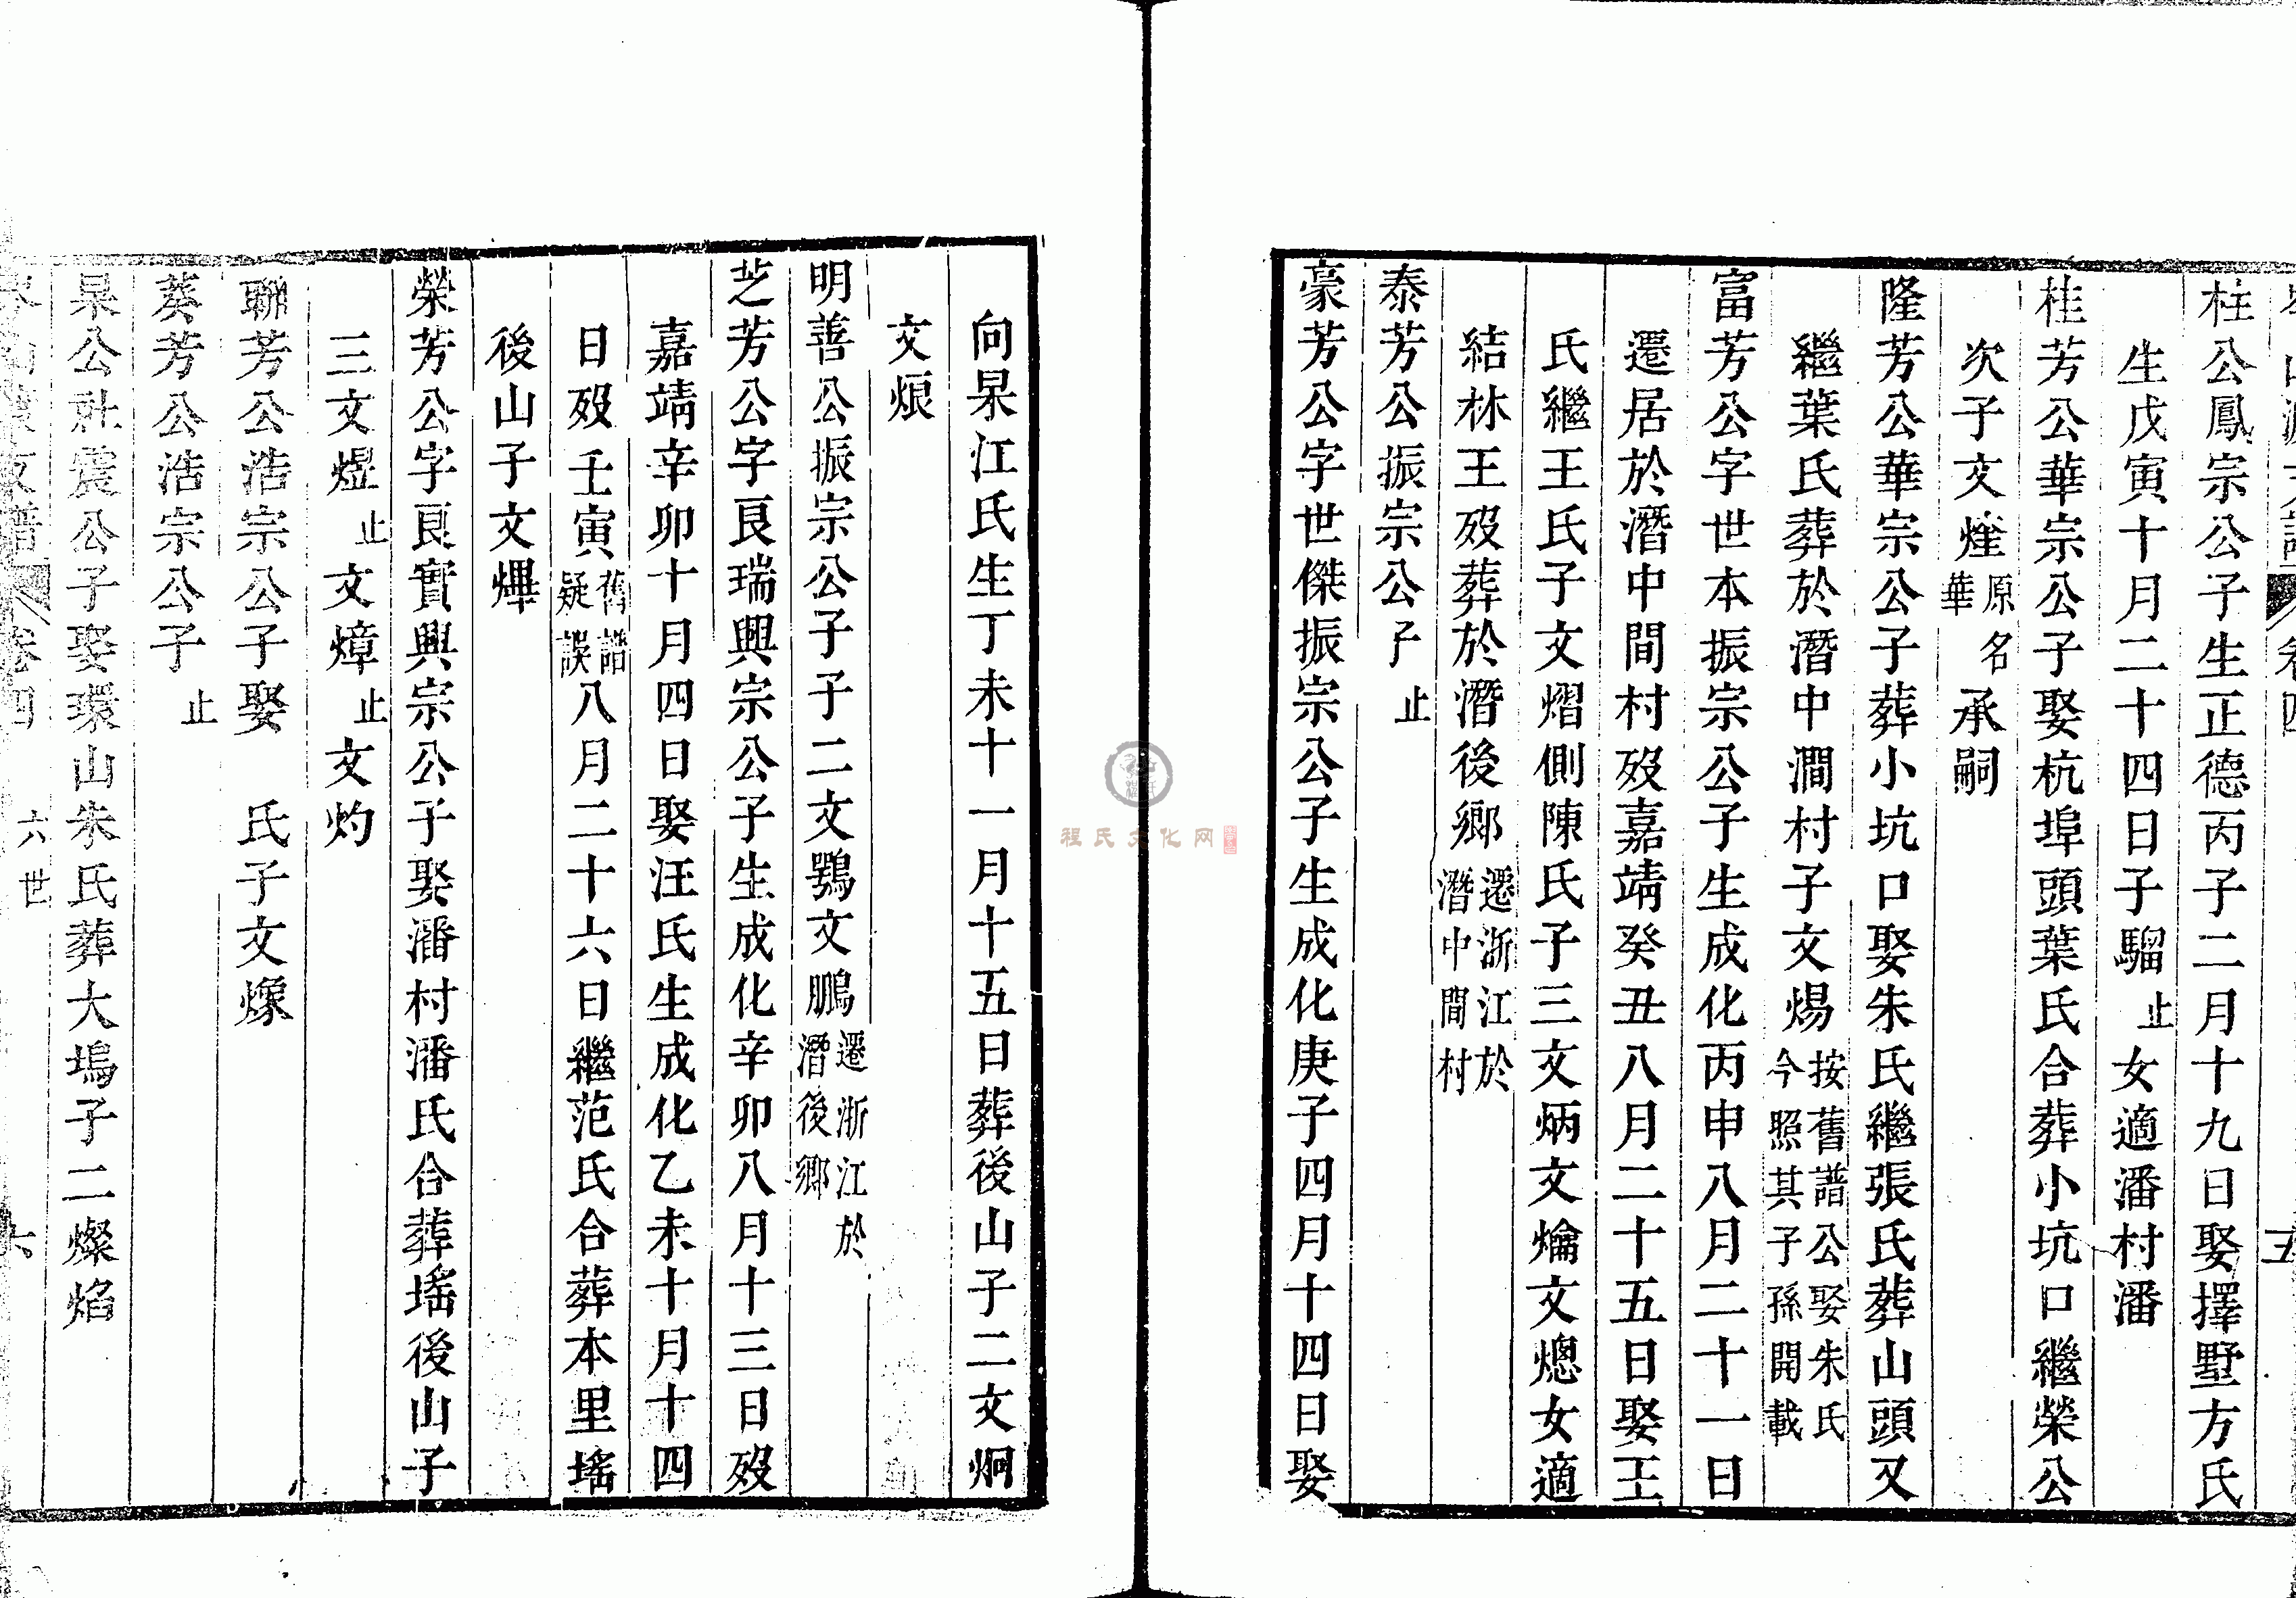 卷四
五
柱公鳳宗公子生正德丙子二月十九日娶擇墅方氏
生戊寅十月二十四日子騮止女適潘村潘
桂芳公華宗公子娶杭埠頭葉氏合葬小坑口繼榮公
次子文煃原名華承嗣
隆芳公華宗公子葬小坑口娶朱氏繼張氏葬山頭又
繼葉氏葬於潛中澗村子文煬按舊譜公娶朱氏今照其子孫開載
富芳公字世本振宗公子生成化丙申八月二十一日
遷居於潛中間村歿嘉靖癸丑八月二十五日娶王
氏繼王氏子文熠側陳氏子三文炳文爚文熜女適
結林王歿葬於潛後鄉遷浙江於潛中間村
泰芳公振宗公子止
豪芳公字世傑振宗公子生成化庚子四月十四日娶
向杲江氏生丁未十一月十五日葬後山子二文炯
文烺
明善公振宗公子子二文鶚文鵬遷浙江於潛後鄉
芝芳公字良瑞興宗公子生成化辛卯八月十三日歿
嘉靖辛卯十月四日娶汪氏生成化乙未十月十四
日歿壬寅舊譜疑誤八月二十六日繼范氏合葬本里瑤
後山子文熚
榮芳公字良實興宗公子娶潘村潘氏合葬瑤後山子
三文煜止文煒止文灼
聯芳公浩宗公子娶 氏子文燝
葵芳公浩宗公子止
杲公社震公子娶環山朱氏葬大塢子二燦焰
支譜 卷四 六世 六
程氏文化网